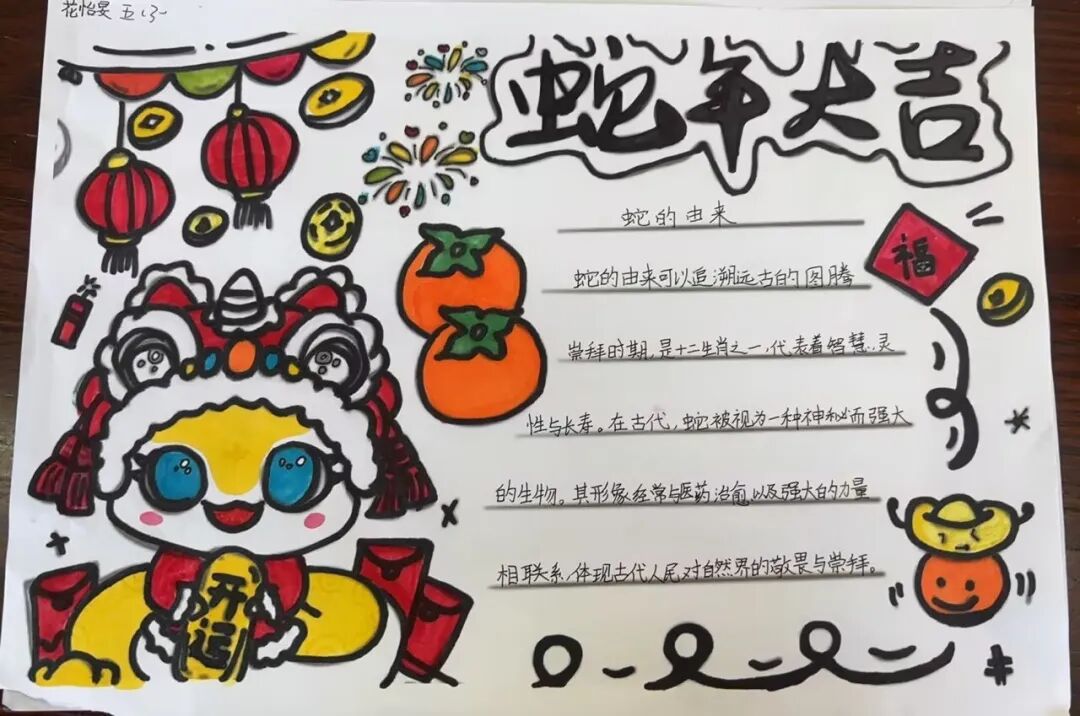 花怡妟 五(3)
蛇年大吉
蛇的由来
福
蛇的由来可以追溯远古的图腾
崇拜时期,是十二生肖之一,代表着智慧、灵
性与长寿。在古代,蛇被视为一种神秘而强大
的生物。其形象经常与医药治愈以及强大的力量
相联系,体现古代人民对自然界的敬畏与崇拜。
开运